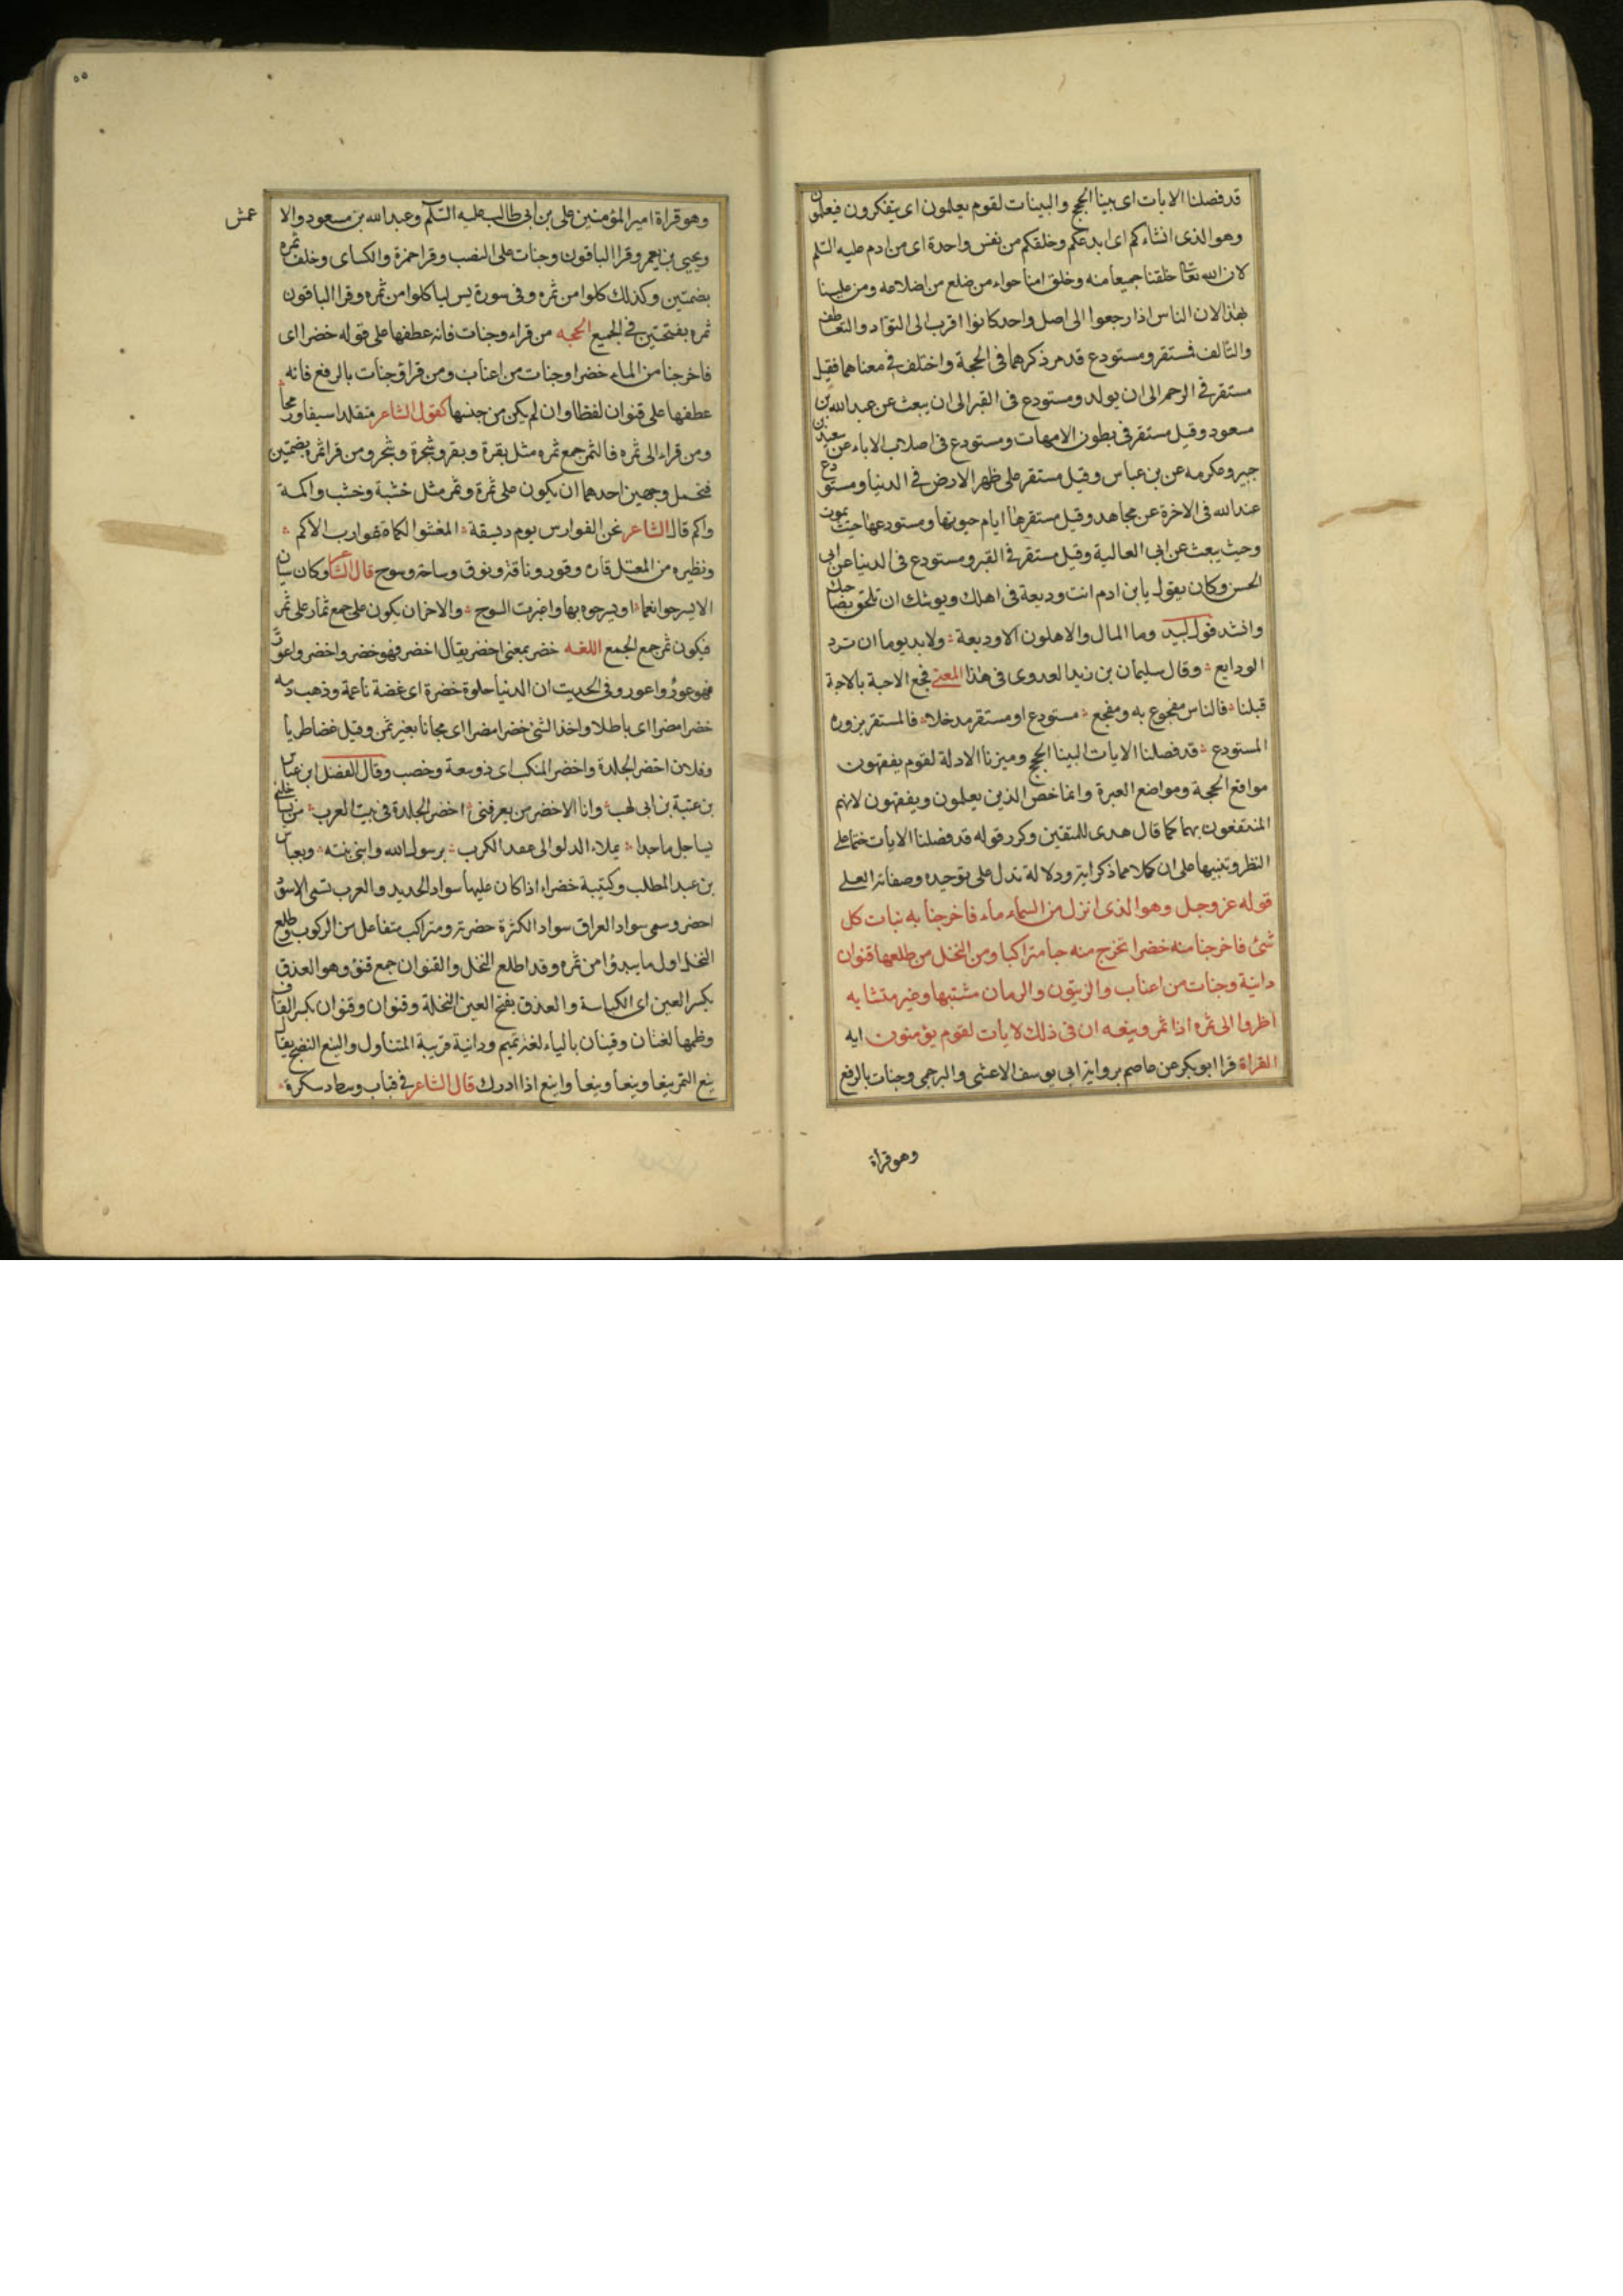 قد فصلنا الايات اى بينا الحجج والبينات لقوم يعلمون اى يتفكرون فيعلمون
وهو الذى انشاءكم اى ابدعكم وخلقكم من نفس واحدة اى من ادم عليه السلم
لان الله تعا خلقنا جميعا منه وخلق امنا حواء من ضلع من اضلاعه ومن علينا
بهذا لان الناس اذا رجعوا الى اصل واحد كانوا اقرب الى التواد والتعاطف
والتالف فمستقر ومستودع قد مر ذكرهما فى الحجة واختلف فى معناهما فقيل
مستقر فى الرحم الى ان يولد ومستودع فى القبر الى ان يبعث عن عبد الله بن
مسعود وقيل مستقر فى بطون الامهات ومستودع فى اصلاب الاباء عن سعيد بن
جبير وعكرمه عن بن عباس وقيل مستقر على ظهر الارض فى الدنيا ومستودع
عند الله فى الاخرة عن مجاهد وقيل مستقرها ايام حيوتها ومستودعها حيث يموت
وحيث يبعث عن ابى العالية وقيل مستقر فى القبر ومستودع فى الدنيا عن ابى
الحسن وكان يقول يا بن ادم انت وديعة فى اهلك ويوشك ان تلحق بصاحبك
وانشد قول لبيد وما المال والاهلون الا وديعة ولا بد يوما ان ترد
الودايع وقال سليمان بن زيد العدوى فى هذا المعنى فجع الاحبة بالاحبة
قبلنا فالناس مفجوع به ومفجع مستودع او مستقر مدخلا فالمستقر يزوره
المستودع قد فصلنا الايات البينا الحجج وميزنا الادلة لقوم يفقهون
مواقع الحجة ومواضع العبرة وانما خص الذين يعلمون ويفقهون لانهم
المنتفعون بهما كما قال هدى للمتقين وكرر قوله قد فصلنا الايات حثا على
النظر وتنبيها على ان كلا مما ذكر اية ودلالة تدل على توحيده وصفاته العلى
قوله عز وجل وهو الذى انزل من السماء ماء فاخرجنا به نبات كل
شئ فاخرجنا منه خضرا نخرج منه حبا متراكبا ومن النخل من طلعها قنوان
دانية وجنات من اعناب والزيتون والرمان مشتبها وغير متشابه
انظروا الى ثمره اذا اثمر وينعه ان فى ذلك لايات لقوم يؤمنون ايه
القراة قرا ابو بكر عن عاصم برواية ابى يوسف الاعشى والبرجمى وجنات بالرفع
وهو قراة
٥٥
وهو قراة امير المؤمنين على بن ابى طالب عليه السلم وعبد الله بن مسعود والا
عمش
ويحيى بن يعمر وقرا الباقون وجنات على النصب وقرا حمزة والكساى وخلف ثمره
بضمتين وكذلك كلوا من ثمره وفى سورة يس لياكلوا من ثمره وقرا الباقون
ثمره بفتحتين فى الجميع الحجه من قراء وجنات فانه عطفها على قوله خضرا اى
فاخرجنا من الماء خضرا وجنات من اعناب ومن قرا وجنات بالرفع فانه
عطفها على قنوان لفظا وان لم يكن من جنسها كقول الشاعر متقلدا سيفا ورمحا
ومن قراء الى ثمره فالثمر جمع ثمره مثل بقرة وبقر وشجرة وشجر ومن قرا ثمره بضمتين
فيحتمل وجهين احدهما ان يكون على ثمرة وثمر مثل خشبة وخشب واكمة
واكم قال الشاعر نحن الفوارس يوم ديسقة المغشوا الكماة غوارب الاكم
ونظيره من المعتل قارة وقور وناقة ونوق وساحة وسوح قال الشاعر وكان سيان
الا يسرحوا نعما او يسرحوه بها واغبرت السوح والاخر ان يكون على جمع ثمار على ثمر
فيكون ثمر جمع الجمع اللغه خضر بمعنى اخضر يقال اخضر فهو خضر واخضر واعور
فهو عور واعور وفى الحديث ان الدنيا حلوة خضرة اى غضة ناعمة وذهب دمه
خضرا مضرا اى باطلا واخذ الشئ خضرا مضرا اى مجانا بغير ثمن وقيل غضا طريا
وفلان اخضر الجلدة واخضر المنكب اى ذو سعة وخصب وقال الفضل ابن عباس
بن عتبة بن ابى لهب وانا الاخضر من يعرفنى اخضر الجلدة فى بيت العرب من يساجلنى
يساجل ماجدا يملاء الدلو الى عقد الكرب برسول الله وابنى بنته وبعباس
بن عبد المطلب وكتيبة خضراء اذا كان عليها سواد الحديد والعرب تسمى الاسود
اخضر وسمى سواد العراق سواد الكثرة خضرته ومتراكب متفاعل من الركوب وطلع
النخل اول ما يبدؤا من ثمره وقد اطلع النخل والقنوان جمع قنو وهو العذق
بكسر العين اى الكباسة والعذق بفتح العين النخلة وقنوان وقنوان بكسر القاف
وظمها لغتان وقينان بالياء لغة تميم ودانية قريبة المتناول والينع النضج يقال
ينع الثمر ينعا وينعا وينعا واينع اذا ادرك قال الشاعر فى قباب وسط دسكرة